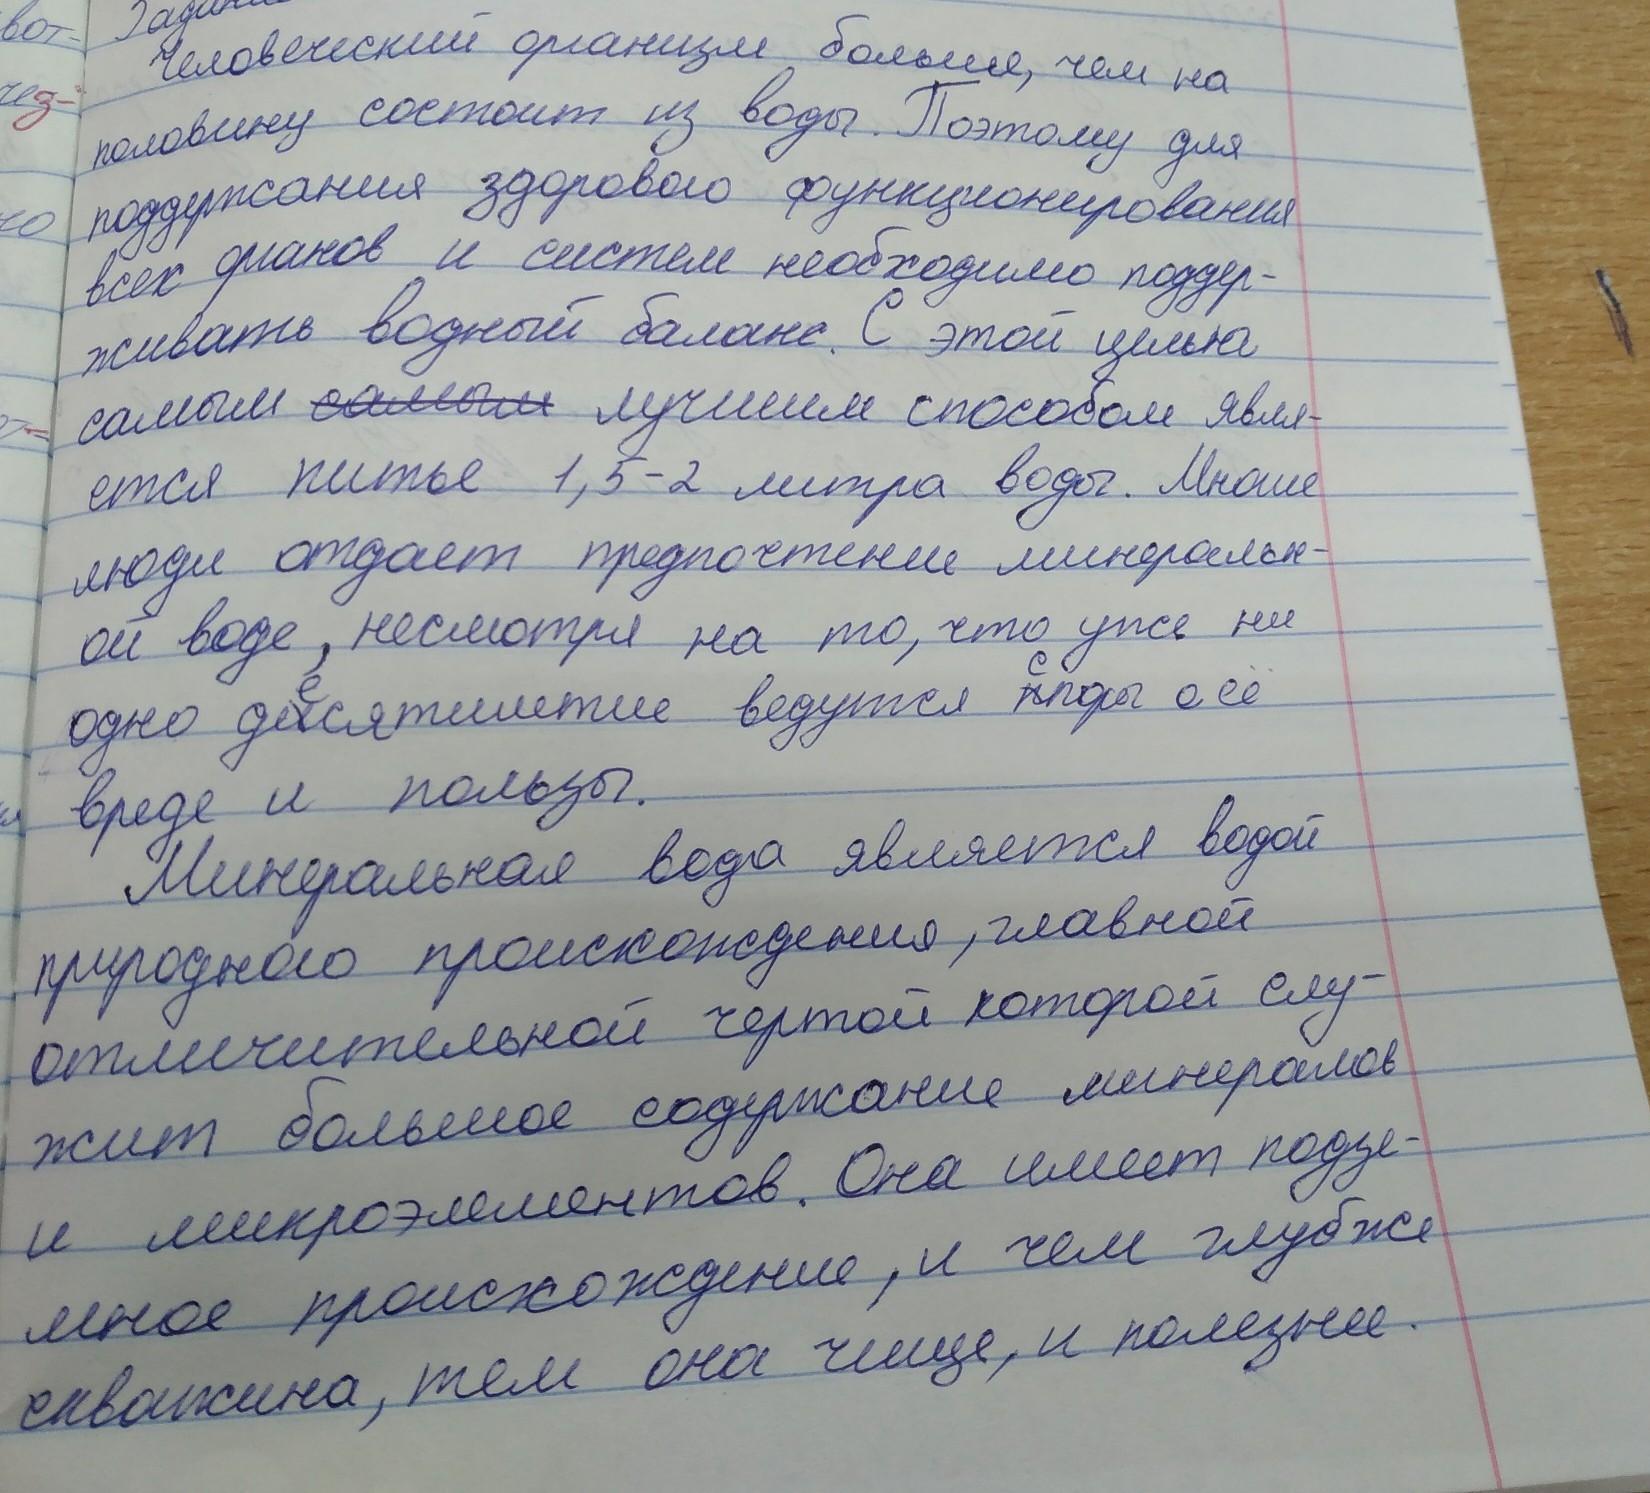 вот-
Задание
чез-
но
Человеческий организм больше, чем на
половину состоит из воды. Поэтому для
поддержания здорового функционирования
всех органов и систем необходимо поддер-
живать водный баланс. С этой целью
самым самым лучшим способом явля-
ется питье 1,5-2 литра воды. Многие
люди отдает предпочтение минеральн-
ой воде, несмотря на то, что уже ни
одно десятилетие ведутся споры о её
вреде и пользы.
Минеральная вода является водой
природного происхождения, главной
отличительной чертой которой слу-
жит большое содержание минералов
и микроэлементов. Она имеет подзе-
мное происхождение, и чем глубже
скважина, тем она чище, и полезнее.